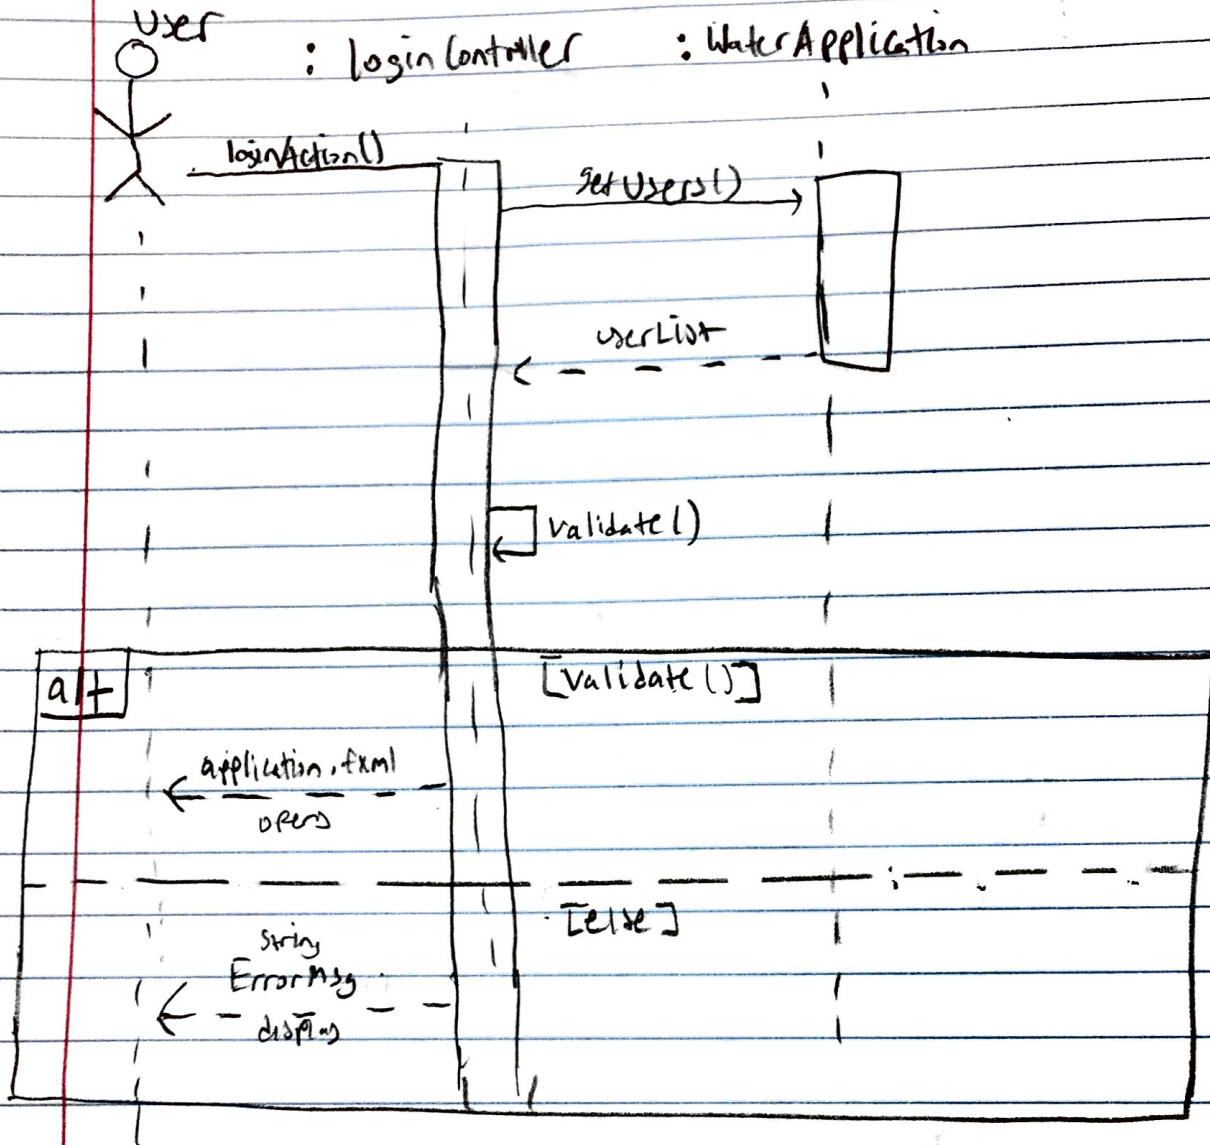 User
: loginController
: WaterApplication
loginAction()
getUsers()
userList
validate()
alt
[validate()]
application.fxml
opens
[else]
String
ErrorMsg
display